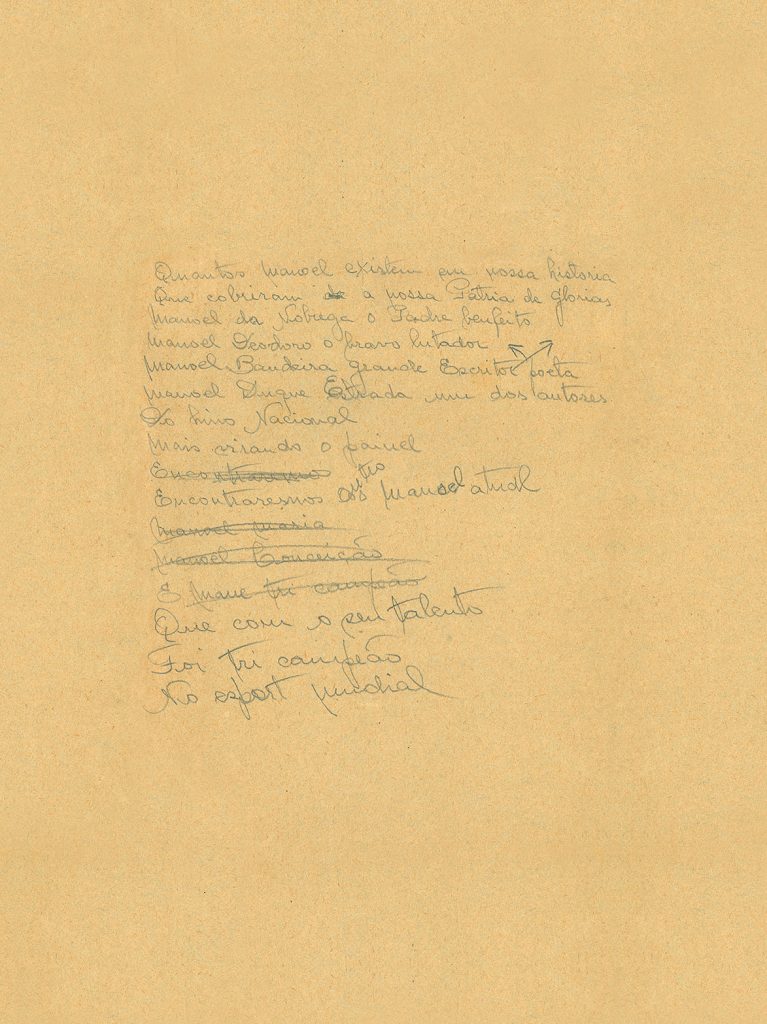 Quantos Manoel existem em nossa historia
Que cobriram de a nossa Patria de glorias
Manoel da Nobrega o Padre benfeito
Manoel Deodoro o bravo lutador
Manoel Bandeira grande Escritor poeta
Manoel Duque Estrada um dos autores
Do hino Nacional
Mais virando o painel
Encontramos
Encontraresmos outro Manoel atual
Manoel Maria
Manoel Conceição
E Mane tri campeão
Que com o seu talento
Foi tri campeão
No esport mundial